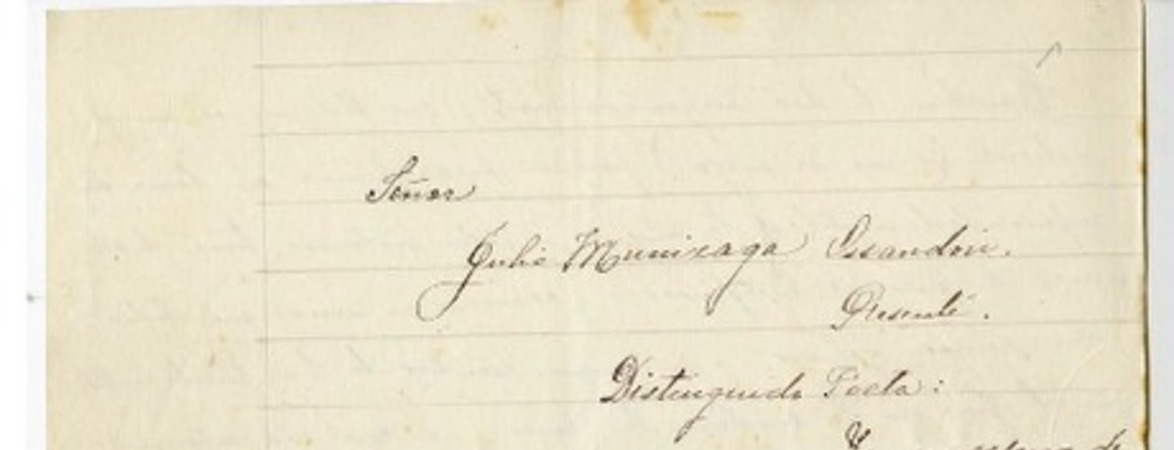 Señor
Julio Munizaga Ossandón.
Presente.
Distinguido Poeta: